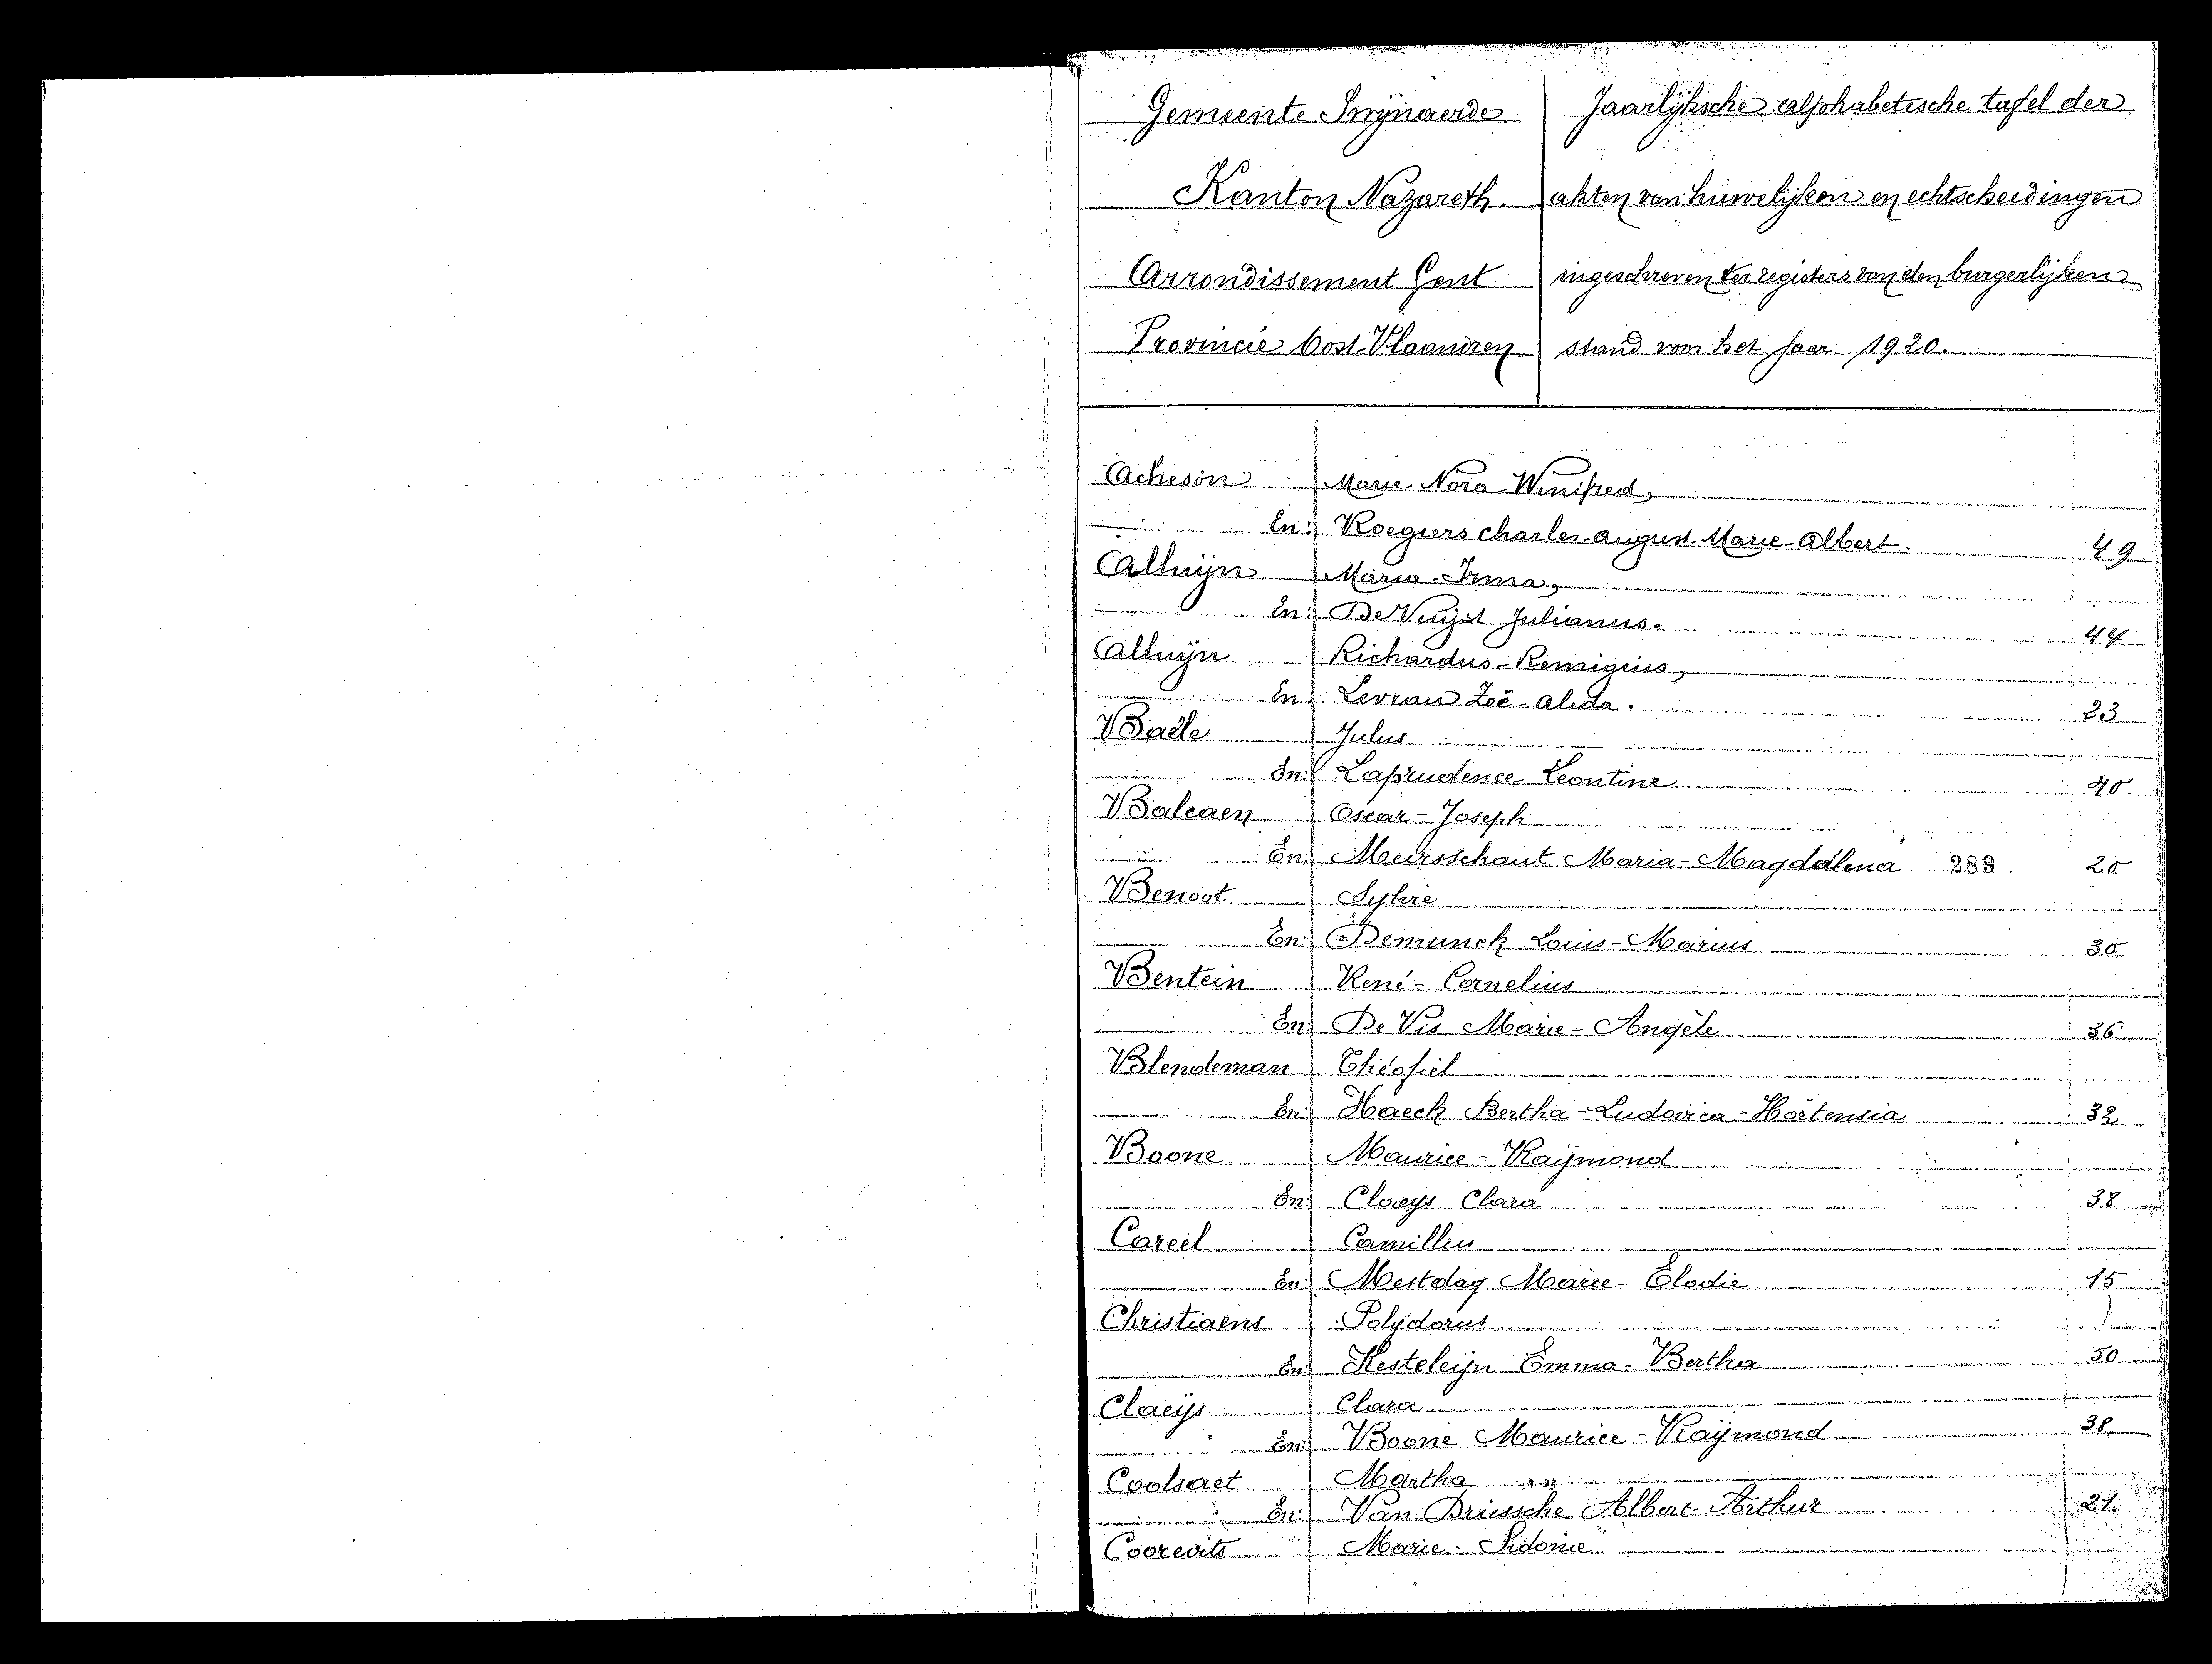 Gemeente Swijnaerde
Kanton Nazareth.
Arrondissement Gent
Provincie Oost-Vlaandren
Jaarlijksche alphabetische tafel der
akten van huwelijken en echtscheidingen
ingeschreven ter registers van den burgerlijken
stand voor het jaar 1920.
Acheson Marie-Nora-Winifred,
En: Roegiers Charles-August-Marie-Albert. 49
Alluijn Maria-Irma,
En: De Vuijst Julianus. 44
Alluijn Richardus-Remigius,
En: Levrau Zoë-Alida. 23
Baële Julius
En: Laprudence Leontine 40.
Balcaen Oscar-Joseph
En: Meirsschaut Maria-Magdalena 289 20
Benoot Sylvie
En: Demunck Louis-Marius 30
Bentein René-Cornelius
En: De Vis Marie-Angèle 36
Blendeman Théofiel
En: Haeck Bertha-Ludovica-Hortensia 32
Boone Maurice-Raÿmond
En: Claeys Clara 38
Careel Camillus
En: Mestdag Marie-Elodie 15
Christiaens Polydorus
En: Kesteleijn Emma-Bertha 50
Claeijs Clara
En: Boone Maurice-Raÿmond 38
Coolsaet Martha
En: Van Driessche Albert-Arthur 21
Coorevits Marie-Sidonie